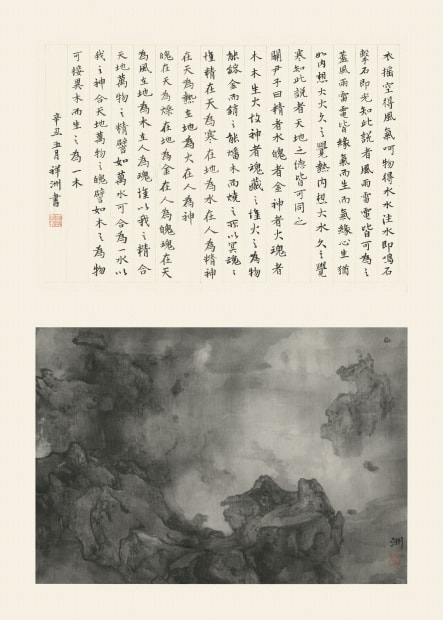 衣搖空得風氣呵物得水水注水即鳴石
擊石即光知此說者風雨雷電皆可為之
蓋風雨雷電皆緣氣而生而氣緣心生猶
如內想大火久之覺熱內想大水久之覺
寒知此說者天地之德皆可同之
關尹子曰精者水魄者金神者火魂者
木木生火故神者魂藏之惟火之為物
能鎔金而銷之能燔木而燒之所以冥魂
惟精在天為寒在地為水在人為精神
在天為熱在地為火在人為神
魄在天為燥在地為金在人為魄魂在天
為風在地為木在人為魂惟以我之精合
天地萬物之精譬如萬水可合為一水以
我之神合天地萬物之魄譬如木之為物
可接異木而生之為一木
辛丑五月祥洲書
洲